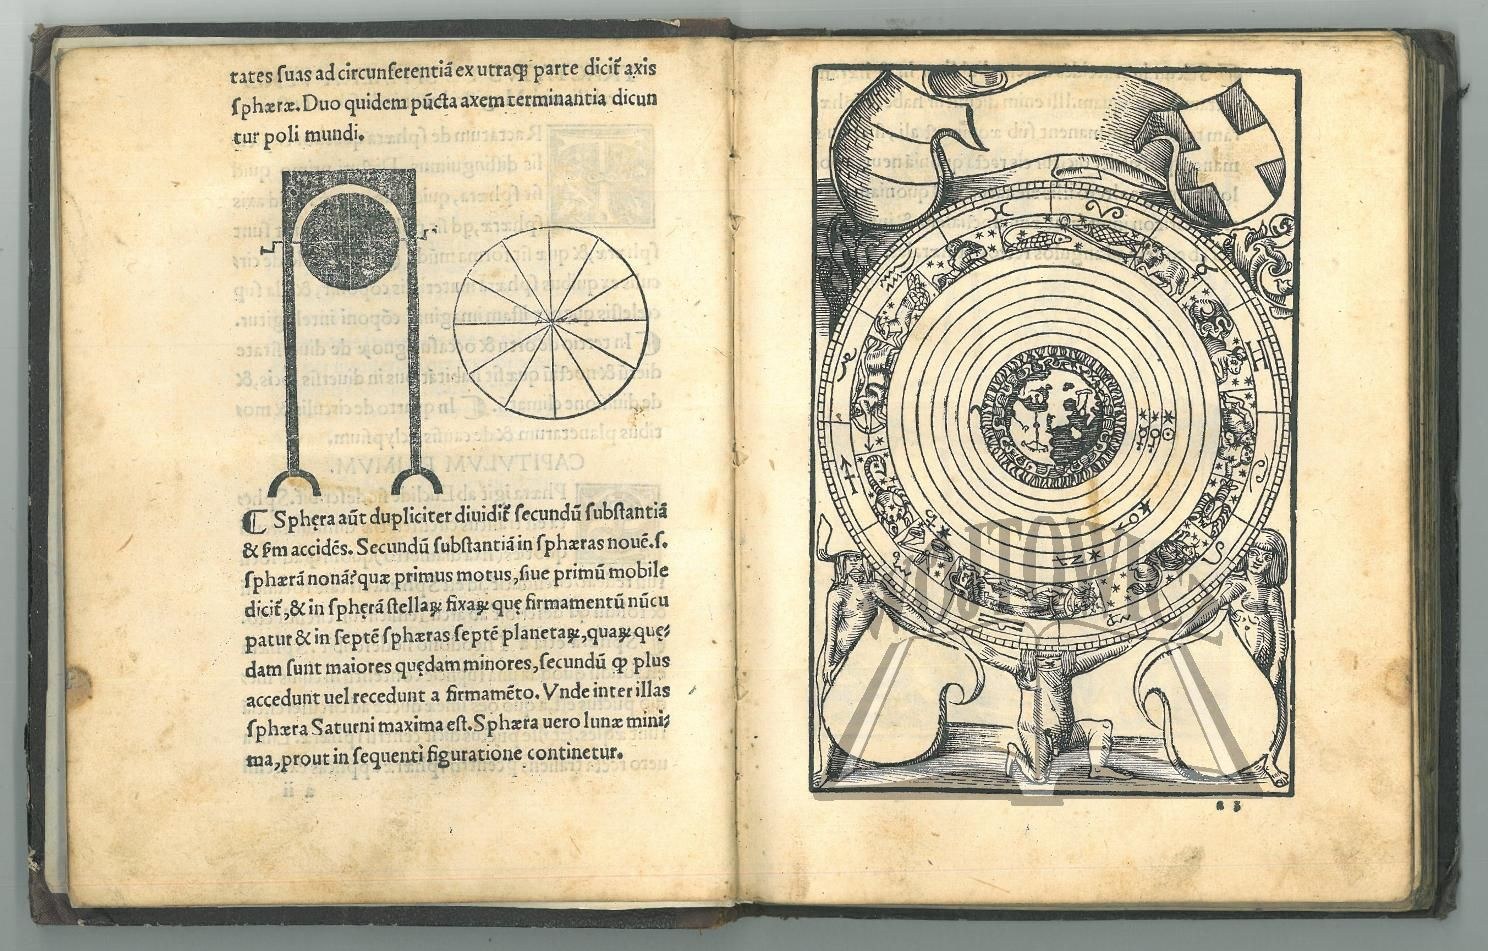 tates ſuas ad circunferentiã ex utraqꝫ parte dicit᷑ axis
ſphæræ. Duo quidem pũcta axem terminantia dicun
tur poli mundi.
Sphęra aũt dupliciter diuidit᷑ ſecundũ ſubſtantiã
& ſm̃ accidẽs. Secundũ ſubſtantiã in ſphæras nouẽ .ſ.
ſphærã nonã: quæ primus motus, ſiue primũ mobile
dicit᷑, & in ſphęrã ſtellaꝝ fixaꝝ quę firmamentũ nũcu
patur & in ſeptẽ ſphæras ſeptẽ planetaꝝ, quaꝝ quę⸗
dam ſunt maiores quędam minores, ſecundũ ꝙ plus
accedunt uel recedunt a firmamẽto. Vnde inter illas
ſphæra Saturni maxima eſt. Sphæra uero lunæ mini⸗
ma, prout in ſequenti figuratione continetur.
a 3